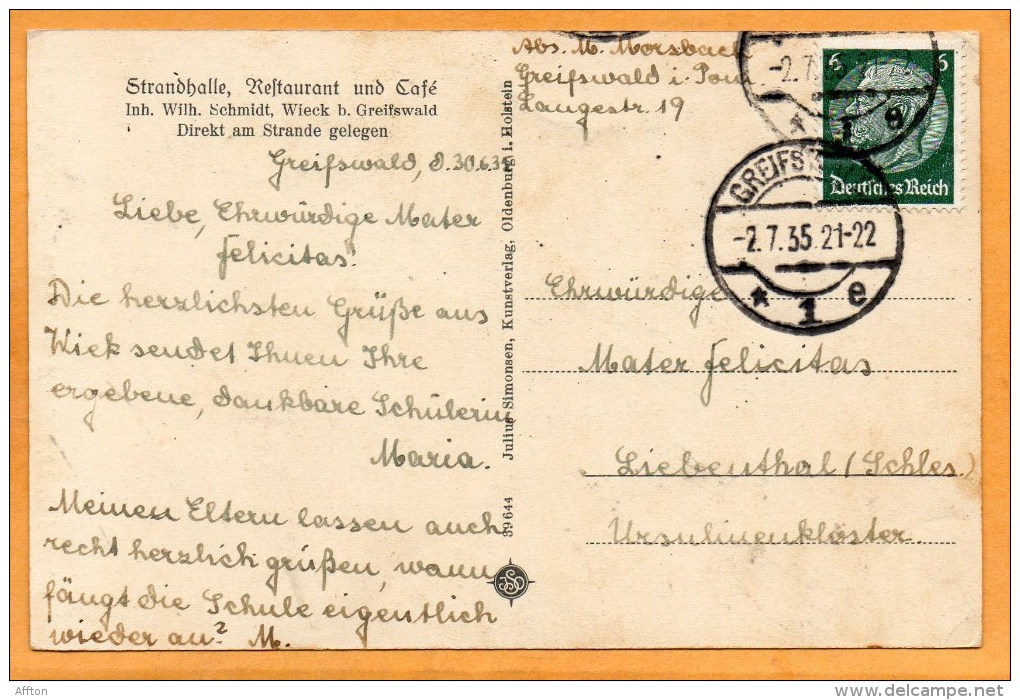 Strandhalle, Restaurant und Café
Inh. Wilh. Schmidt, Wieck b. Greifswald
Direkt am Strande gelegen
Greifswald, d. 30.6.35
Liebe, Ehrwürdige Mater
Felicitas!
Die herzlichsten Grüße aus
Wiek sendet Ihnen Ihre
ergebene, dankbare Schülerin
Maria.
Meinen Eltern lassen auch
recht herzlich grüßen, wann
fängt die Schule eigentlich
wieder an? M.
Julius Simonsen, Kunstverlag, Oldenburg i. Holstein
39644
JSO
Abs. M. Morsbach
Greifswald i. Pom
Langestr. 19
6 6
Deutsches Reich
-2.7.35
* 1 e
GREIFSW
-2.7.35.21-22
* 1 e
Ehrwürdige
Mater Felicitas
Liebenthal (Schles.)
Ursulinenkloster
Affton
delcampe.net